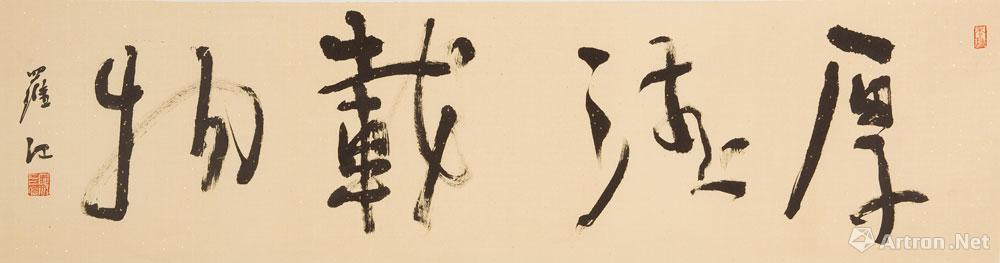 厚德載物
羅江
Artron.Net